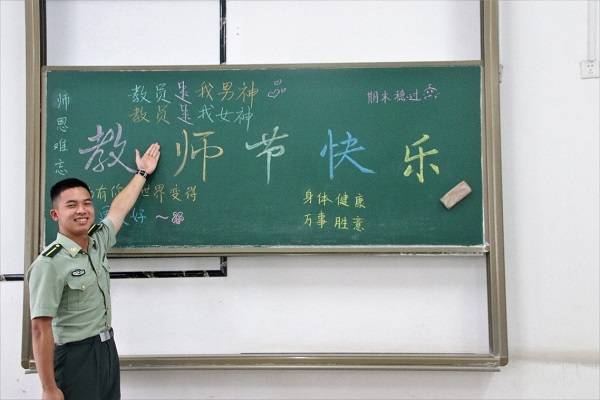 教员是我男神
教员是我女神
期末稳过
师恩难忘
教师节快乐
有你 世界变得
更美好~
身体健康
万事胜意